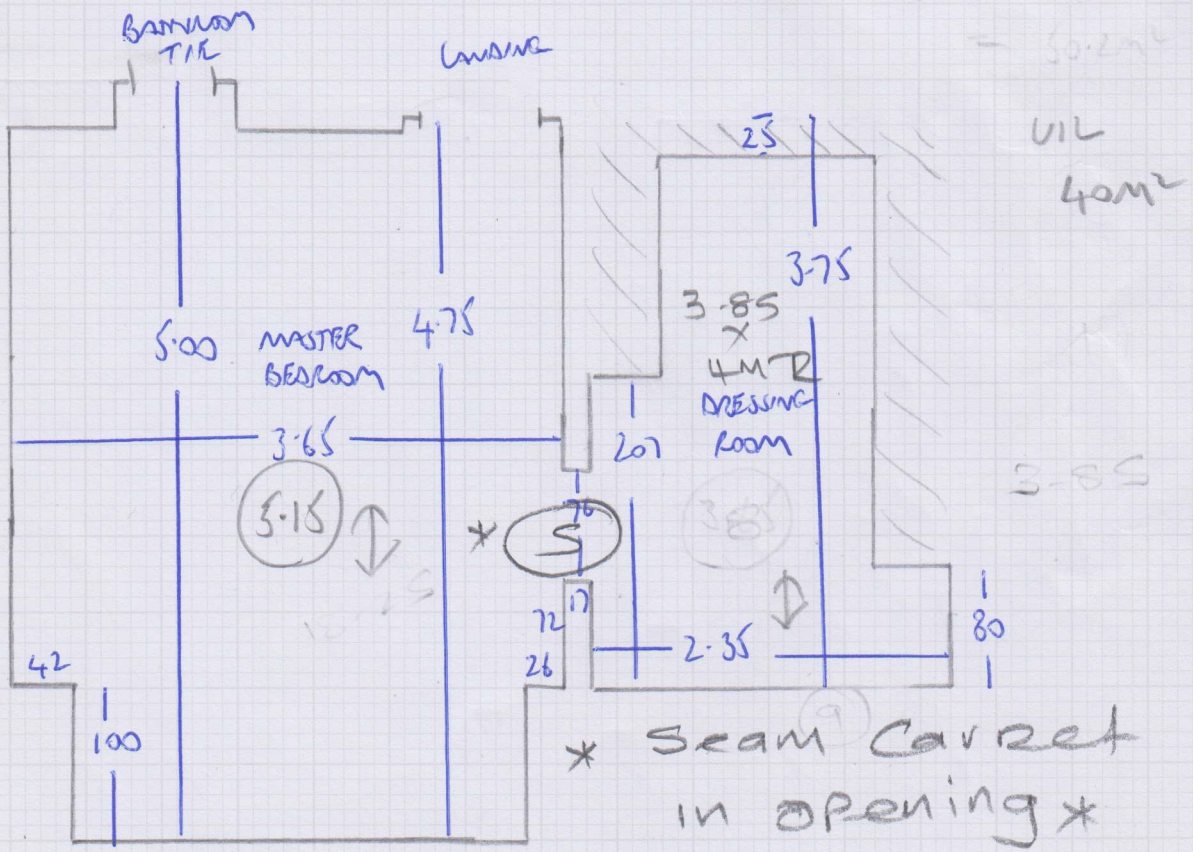 BATHROOM
TILE
LANDING
= 50.2m²
U/L
40m²
25
3.75
3.85
x
4MTR
DRESSING
ROOM
5.00
MASTER
BEDROOM
4.75
3.65
207
3.85
5.15
*
S
76
3.85
17
72
26
2.35
80
42
100
9
* Seam Carpet
in opening *